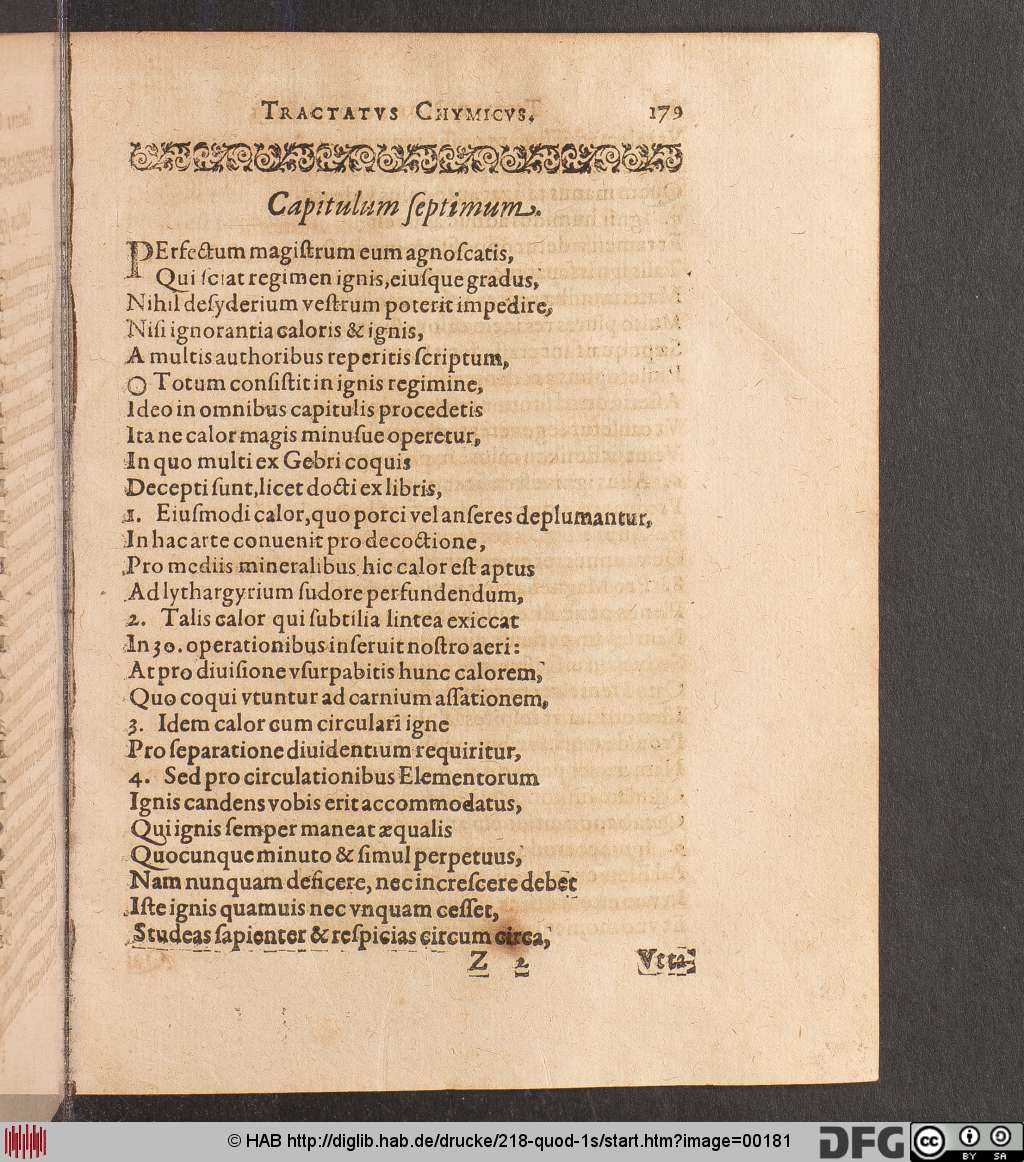 TRACTATVS CHYMICVS. 179
Capitulum ſeptimum.
PErfectum magiſtrum eum agnoſcatis,
Qui ſciat regimen ignis, eiuſque gradus,
Nihil deſyderium veſtrum poterit impedire,
Niſi ignorantia caloris & ignis,
A multis authoribus reperitis ſcriptum,
○ Totum conſiſtit in ignis regimine,
Ideo in omnibus capitulis procedetis
Ita ne calor magis minuſue operetur,
In quo multi ex Gebri coquis
Decepti ſunt, licet docti ex libris,
1. Eiuſmodi calor, quo porci vel anſeres deplumantur,
In hac arte conuenit pro decoctione,
Pro mediis mineralibus hic calor eſt aptus
Ad lythargyrium ſudore perfundendum,
2. Talis calor qui ſubtilia lintea exiccat
In 30. operationibus inſeruit noſtro aeri:
At pro diuiſione vſurpabitis hunc calorem,
Quo coqui vtuntur ad carnium aſſationem,
3. Idem calor cum circulari igne
Pro ſeparatione diuidentium requiritur,
4. Sed pro circulationibus Elementorum
Ignis candens vobis erit accommodatus,
Qui ignis ſemper maneat æqualis
Quocunque minuto & ſimul perpetuus,
Nam nunquam deficere, nec increſcere debet
Iſte ignis quamuis nec vnquam ceſſet,
Studeas ſapienter & reſpicias circum circa,
Z 2 Vtta-
© HAB http://diglib.hab.de/drucke/218-quod-1s/start.htm?image=00181
DFG
cc
BY SA